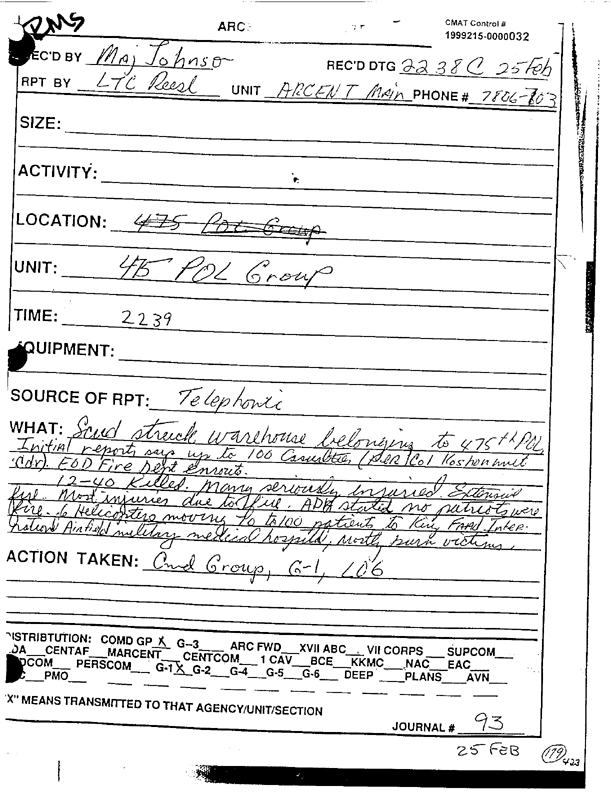 RMS
ARC
CMAT Control #
1999215-0000032
EC'D BY Maj Johnso REC'D DTG 2238C 25 Feb
RPT BY LTC Reesl UNIT ARCENT Main PHONE # 7806-703
SIZE:
ACTIVITY:
LOCATION: 475 POL Group
UNIT: 475 POL Group
TIME: 2239
QUIPMENT:
SOURCE OF RPT: Telephonic
WHAT: Scud struck warehouse belonging to 475th POL.
Initial reports says up to 100 Casualties (per Col unit
Cdr). EOD Fire Dept Enroute.
12-40 Killed. Many seriously injuried. Extensive
fire. Most injuries due to fire. ADA stated no patriots were
fire. 6 Helicopters moving 70 to 100 patients to King Fahd Inter-
national Airfield military medical hospital, mostly burn victims.
ACTION TAKEN: Cmd Group, G-1, LOG
ISTRIBTUTION: COMD GP X G--3 ARC FWD XVII ABC VII CORPS SUPCOM
DA CENTAF MARCENT CENTCOM 1 CAV BCE KKMC NAC EAC
DCOM PERSCOM G-1 X G-2 G-4 G-5 G-6 DEEP PLANS AVN
C PMO
"X" MEANS TRANSMITTED TO THAT AGENCY/UNIT/SECTION
JOURNAL # 93
25 FEB
179
423